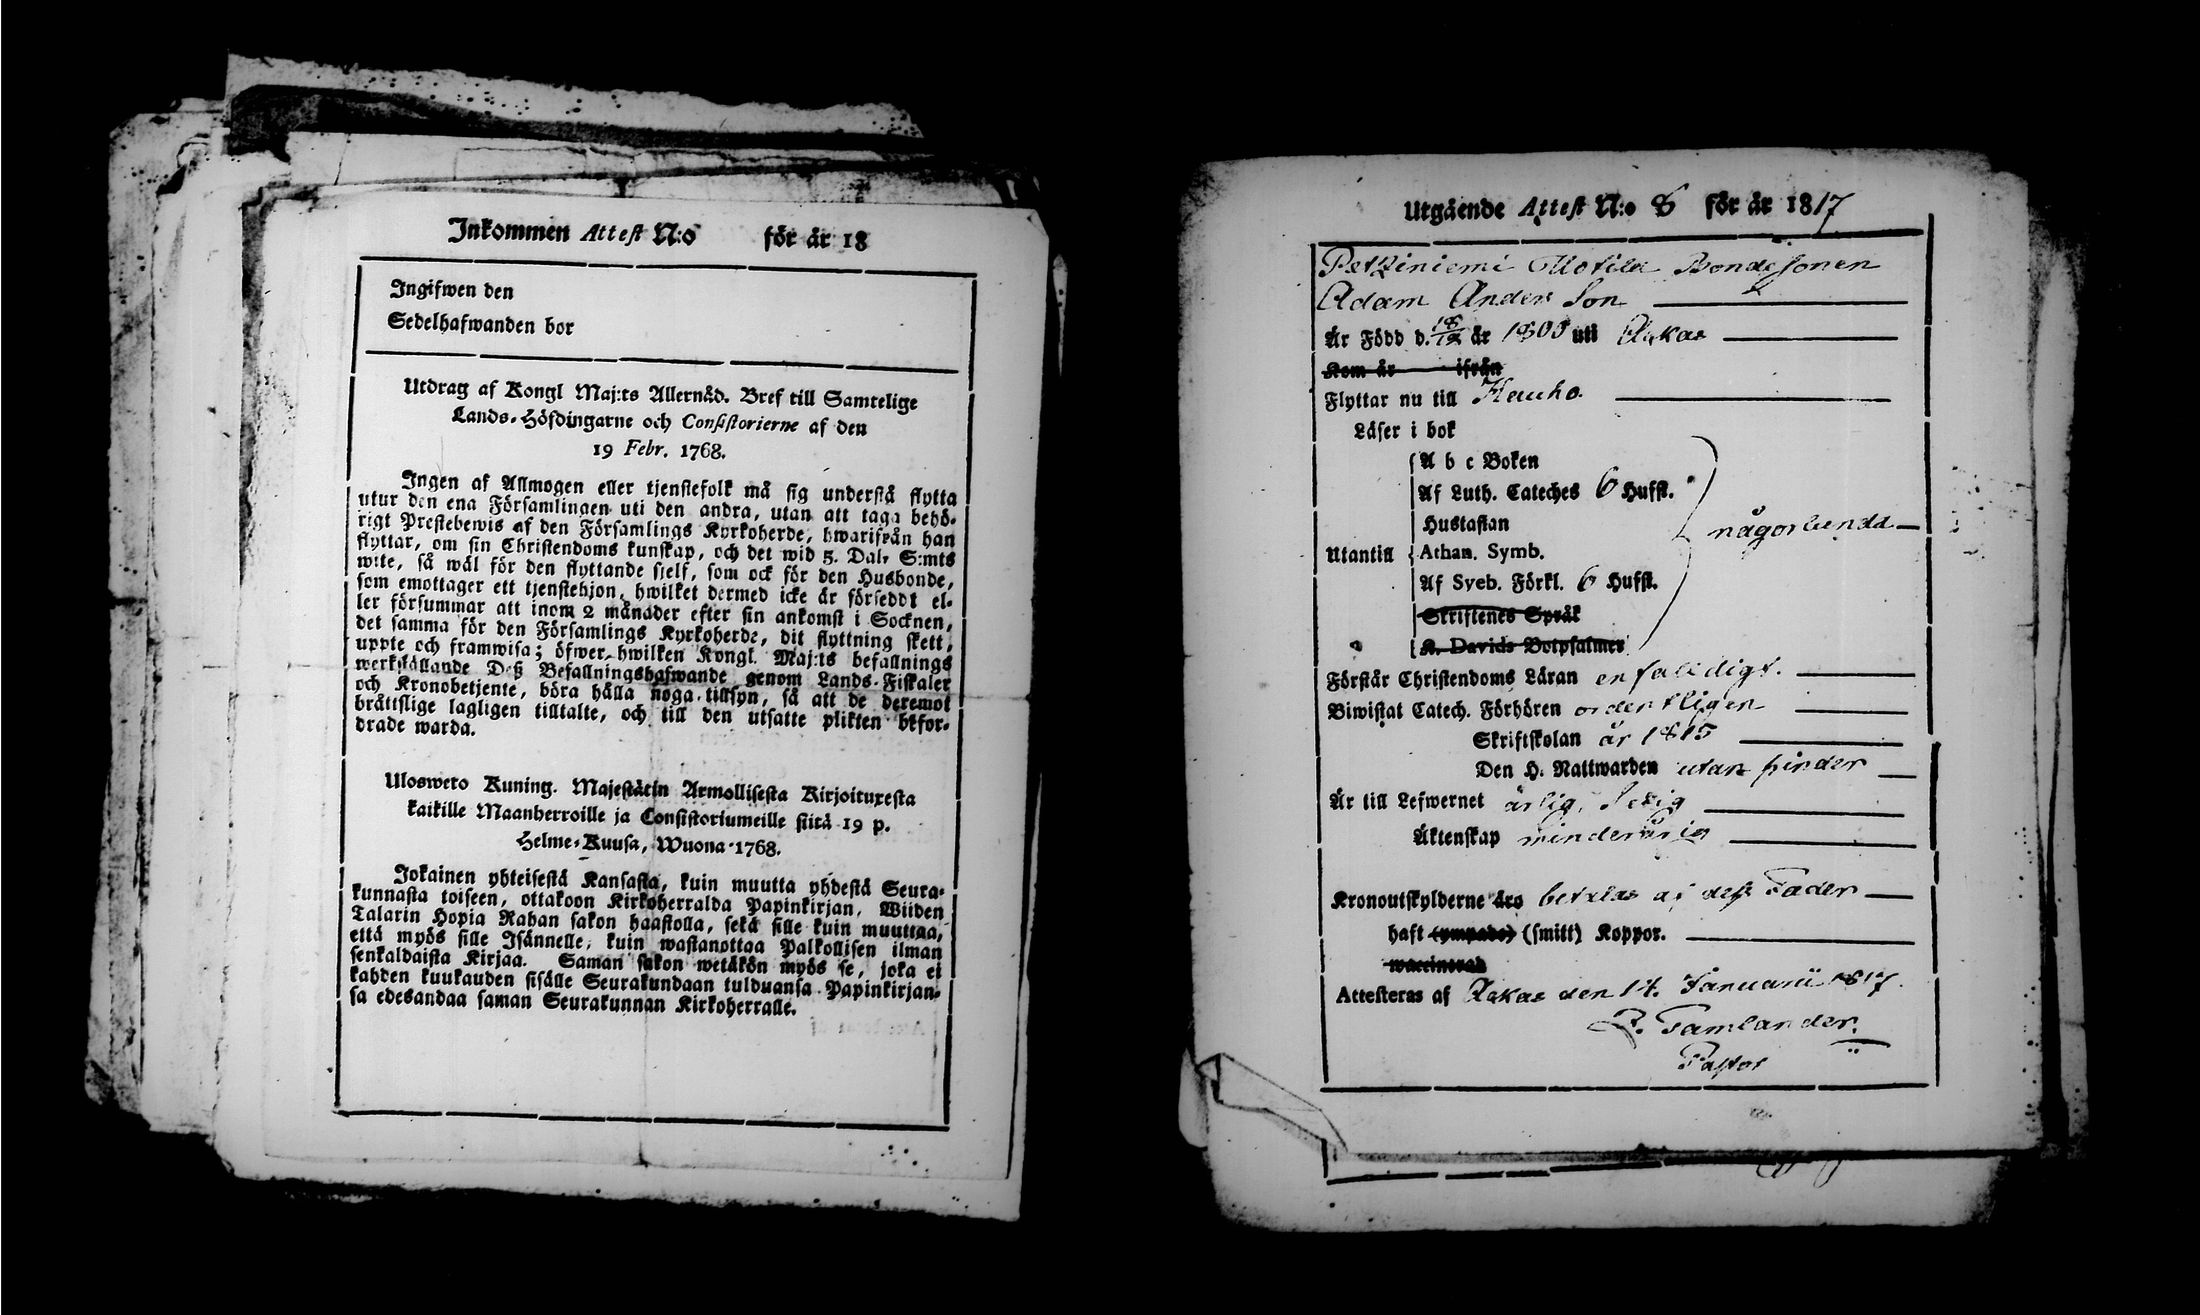 Inkommen Attest N:o för år 18
Ingifwen den
Sedelhafwanden bor
Utdrag af Kongl Maj:ts Allernåd. Bref till Samtelige
Lands-Höfdingarne och Consistorierne af den
19 Febr. 1768.
Ingen af Allmogen eller tjenstefolk må sig understå flytta
utur den ena Församlingen uti den andra, utan att taga behö-
rigt Prestebewis af den Församlings Kyrkoherde, hwarifrån han
flyttar, om sin Christendoms kunskap, och det wid 5. Dalr S:mts
wite, så wäl för den flyttande sjelf, som ock för den Husbonde,
som emottager ett tjenstehjon, hwilket dermed icke är försedt el-
ler försummar att inom 2 månader efter sin ankomst i Socknen,
det samma för den Församlings Kyrkoherde, dit flyttning skett,
uppte och framwisa; öfwer hwilken Kongl. Maj:ts befallnings
werkställande Deß Befallningshafwande genom Lands-Fiskaler
och Kronobetjente, böra hålla noga tillsyn, så att de deremot
bråttslige lagligen tilltalte, och till den utsatte plikten befor-
drade warda.
Uloswero Kuning. Majestätin Armollisesta Kirjoituxesta
kaikille Maanherroille ja Consistoriumeille siitä 19 p.
Helme-Kuusa, Wuona 1768.
Jokainen yhteisestä Kansasta, kuin muutta yhdestä Seura-
kunnasta toiseen, ottakoon Kirkoherralda Papinkirjan, Wiiden
Talarin Hopia Rahan sakon haastolla, sekä sille kuin muuttaa,
että myös sille Isännelle, kuin wastanottaa Palkollisen ilman
senkaldaista Kirjaa. Saman sakon wetäkön myös se, joka ei
kahden kuukauden sisälle Seurakundaan tulduansa Papinkirjan-
sa edesandaa saman Seurakunnan Kirkoherralle.
Utgående Attest N:o 8 för år 1817
Petziniemi Uotila Bondesonen
Adam Anders Son
Är Född d. 18/12 år 1800 uti Akas
Kom år ifrån
Flyttar nu till Hauho
Läser i bok
A b c Boken
Af Luth. Cateches 6 Hufst.
Hustaflan
Utantill Athan. Symb. någorlunda
Af Sveb. Förkl. 6 Hufst.
Skriftenes Språk
K. Davids Botpsalmer
Förstår Christendoms Läran enfaldigt.
Biwistat Catech. Förhören ordentligen
Skriftskolan år 1815
Den H. Nattwarden utan hinder
Är till Lefwernet ärlig, Sedig
Äktenskap minderårig
Kronoutskylderne äro betalas af dess Fader
haft (ympade) (smitt) Koppor.
waccinerad
Attesteras af Akas den 14. Januarii 1817.
Tamlander.
Pastor